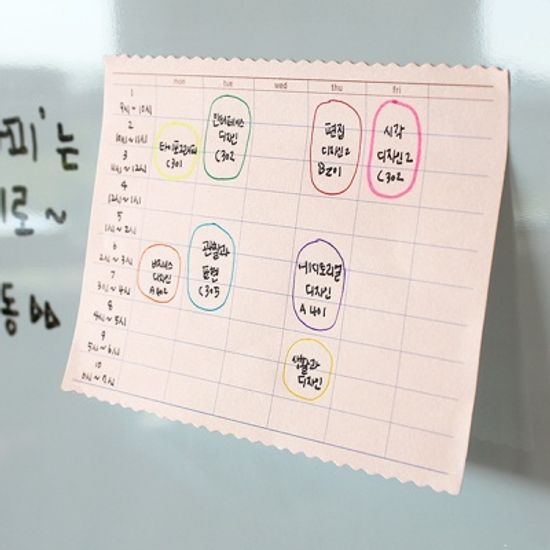 mon tue wed thu fri
1
9시~10시
2
10시~11시
3
11시~12시
4
12시~1시
5
1시~2시
6
2시~3시
7
3시~4시
8
4시~5시
9
5시~6시
10
6시~7시
타이포그래피
C301
인터페이스
디자인
C302
편집
디자인2
B201
시각
디자인2
C302
비즈니스
디자인
A402
관찰과
표현
C305
에디토리얼
디자인
A401
생활과
디자인
피'는
로~
동